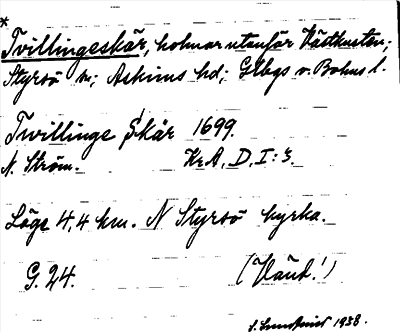 *
Tvillingeskär, holmar utanför Västkusten;
Styrsö sn; Askims hd; Gtbgs o. Bohus l.
Twillinge Skär 1699.
N. Ström. KrA, D, I:3.
Läge 4,4 km. N Styrsö kyrka.
G. 24. (Vänd!)
S. Lundkvist 1938.